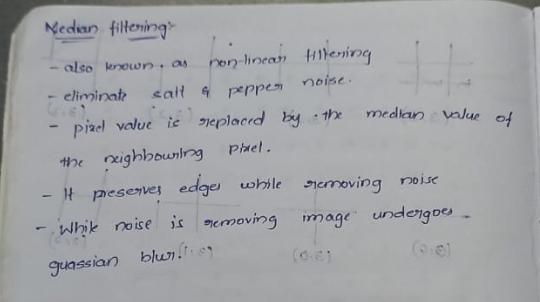 Median filtering:-
- also known as non-linear filtering
- eliminate salt & pepper noise.
- pixel value is replaced by the median value of
the neighbouring pixel.
- It preserves edges while removing noise
- While noise is removing image undergoes
guassian blur.